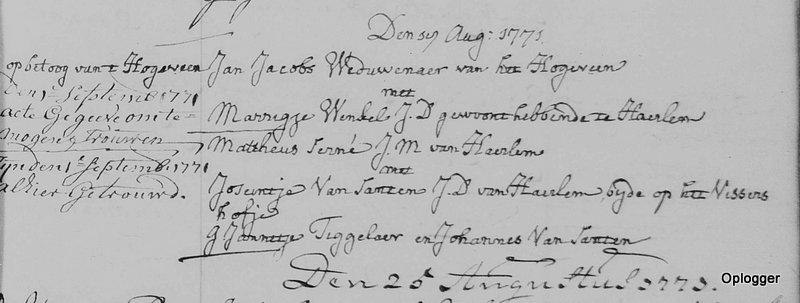 Den 17 Aug: 1771.
op betoog van 't Hogeveen
den 1e September 1771
acte Gegeven om te
mogen Trouwen
Zijn den 1e September 1771
alhier Getrouwd.
Jan Jacobs Weduwenaer van het Hogeveen
met
Marrigje Wenkel J.D gewoont hebbende te Haerlem
Mattheus Serné J.M van Haerlem
met
Josuintje Van Santen J.D van Haerlem, byde op het Vissers
hofje
g Jannetje Tiggelaer en Johannes Van Santen
Den 25e Augustus 1771.
Oplogger